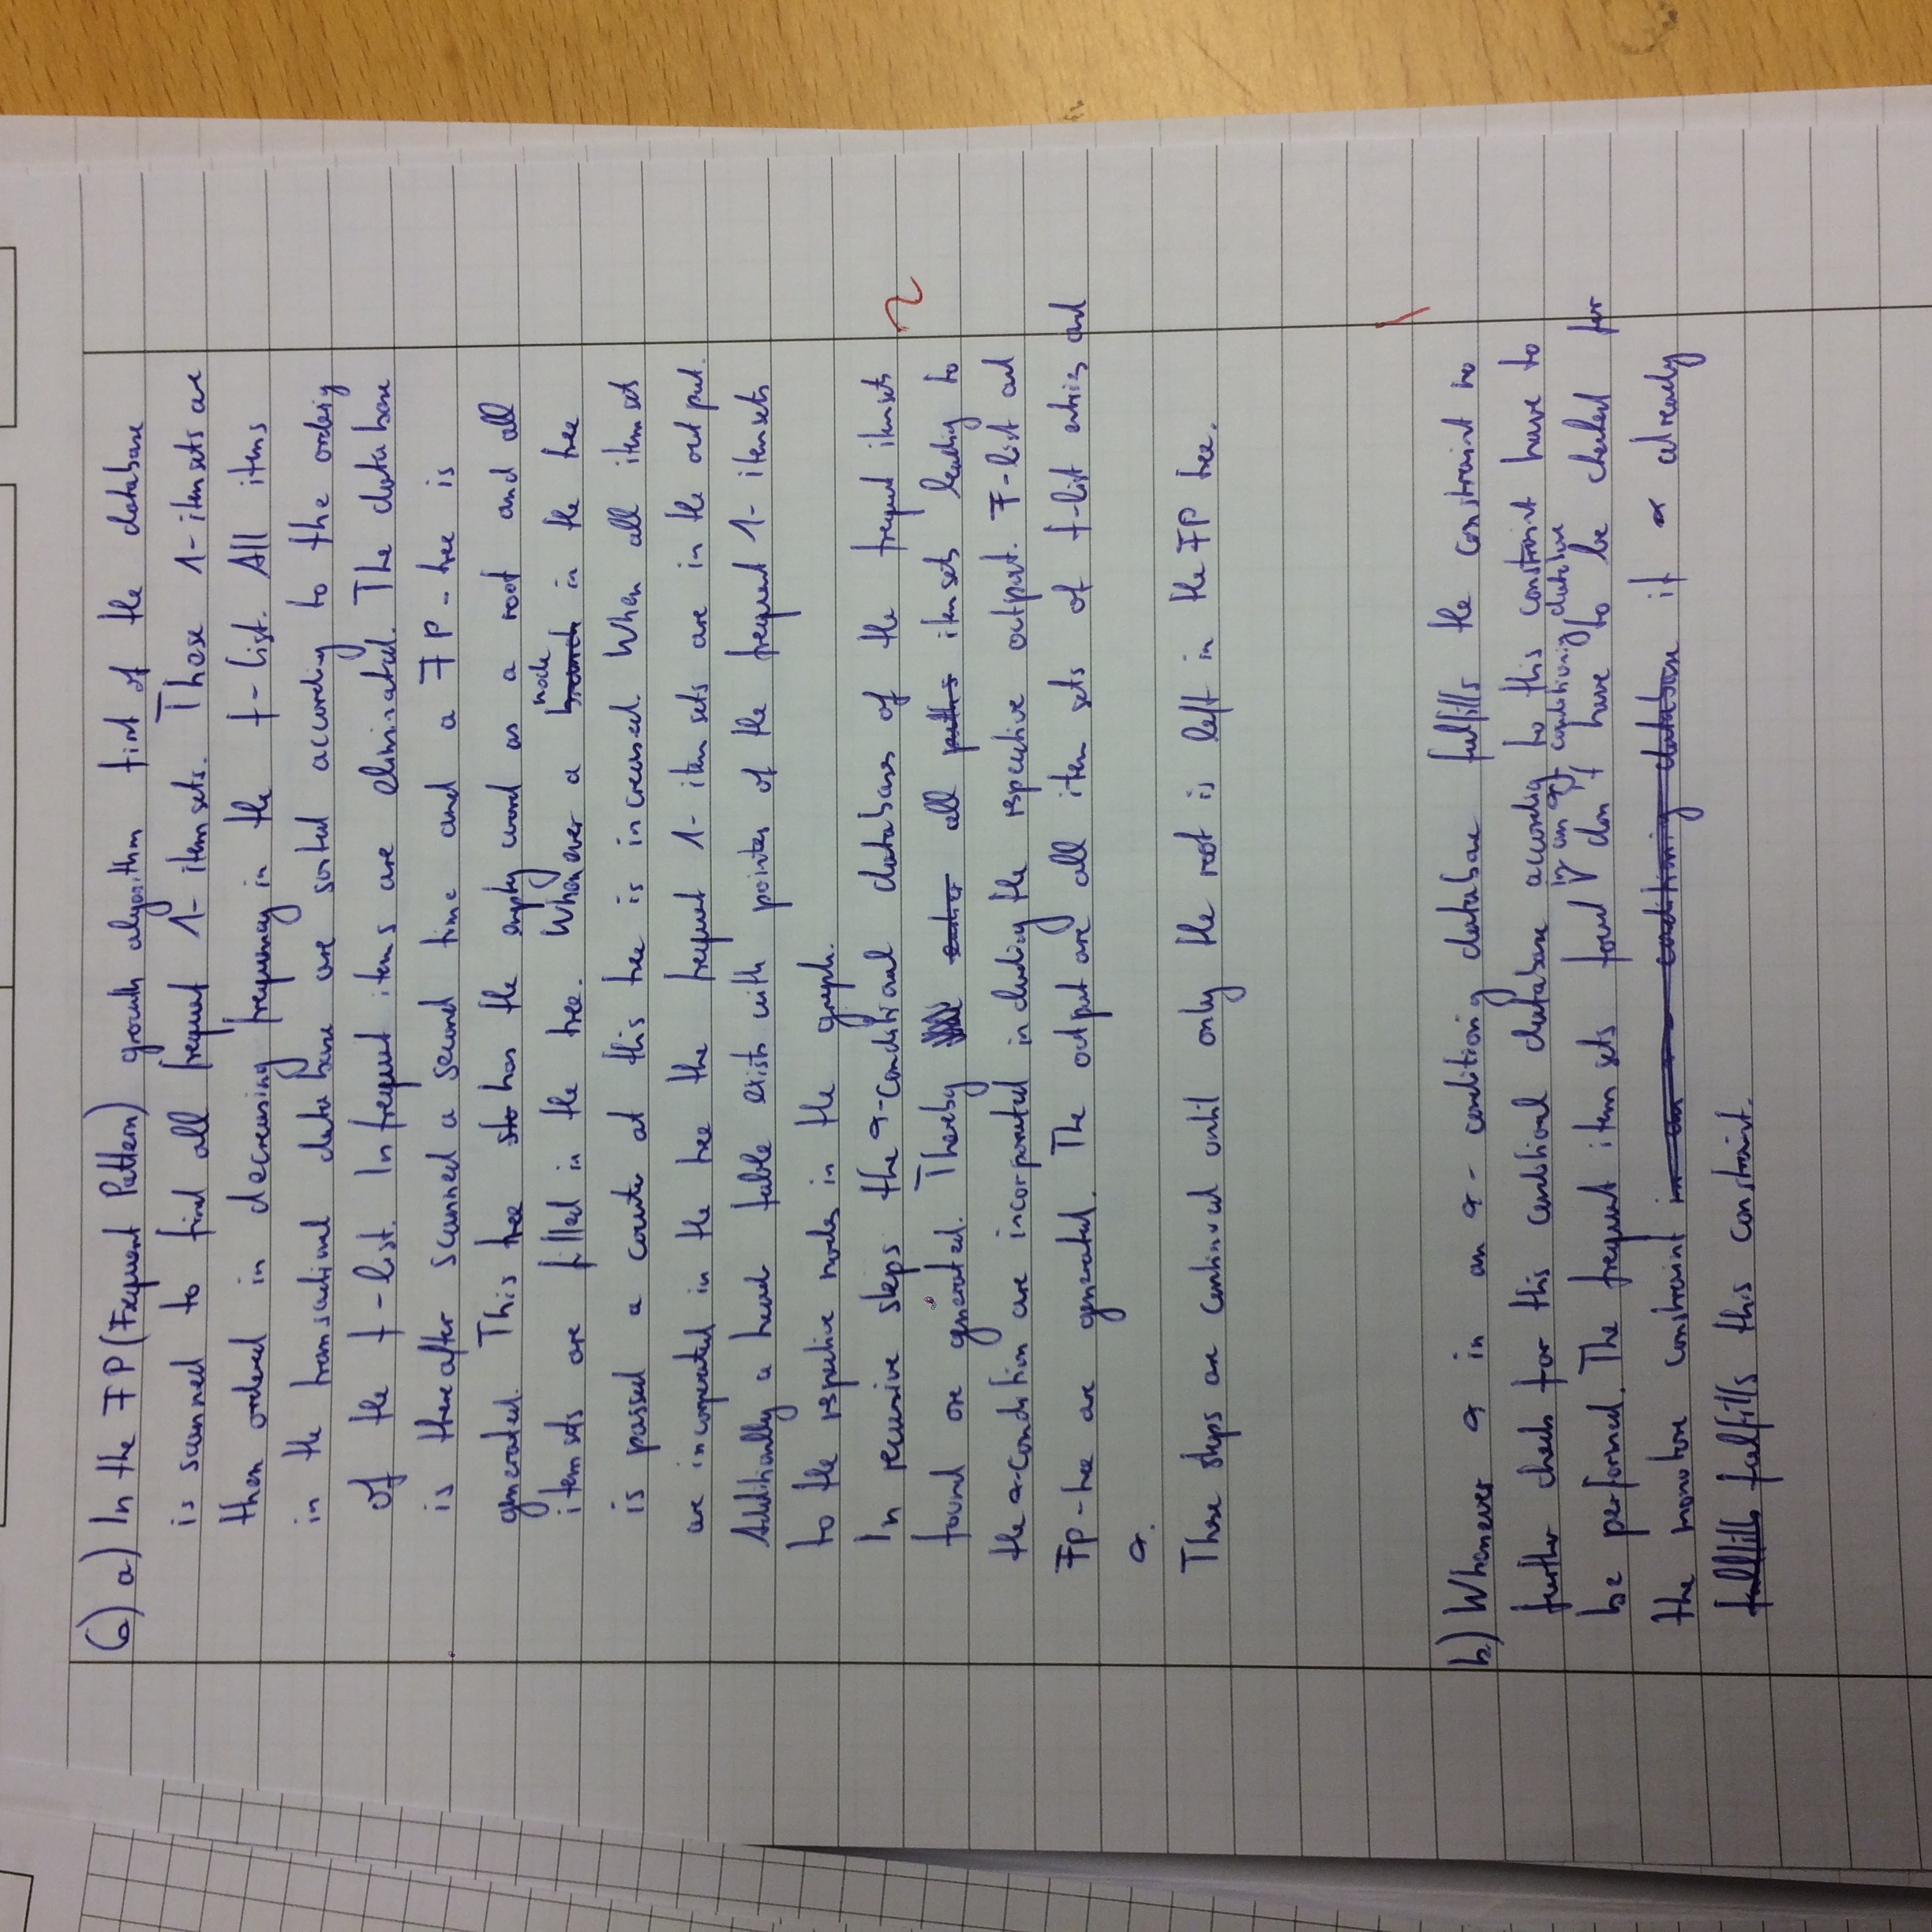 6) a) In the FP (Frequent Pattern) growth algorithm first of the database
is scanned to find all frequent 1-itemsets. These 1-itemsets are
then ordered in decreasing frequency in the f-list. All items
in the transactional database are sorted according to the ordering
of the f-list. Infrequent items are eliminated. The database
is thereafter scanned a second time and a FP-tree is
generated. This tree has the empty word as a root and all
itemsets are filled in the tree. Whenever a node in the tree
is passed a counter at this tree is increased. When all itemsets
are incorporated in the tree the frequent 1-itemsets are in the output.
Additionally a head table exists with pointers of the frequent 1-itemsets
to the respective nodes in the graph.
In recursive steps the α-conditional databases of the frequent itemsets
found are generated. Thereby all itemsets leading to
2
the α-condition are incorporated including the respective output. F-list and
FP-tree are generated. The output are all item sets of f-list entries and
α.
These steps are continued until only the root is left in the FP tree.
1
b) Whenever α in an α-conditioning database fulfills the constraint no
further checks for this conditional database according to this constraint have to
be performed. The frequent item sets found in an α-conditioning database don't have to be checked for
the monotone constraint if α already
fulfills this constraint.